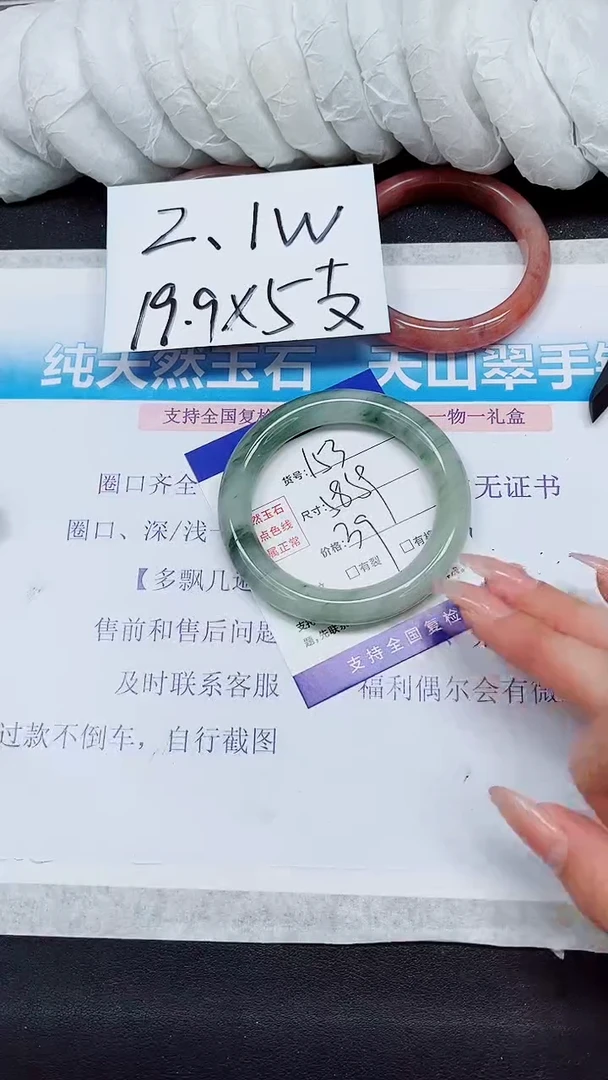 2、1W
19.9X5支
纯天然玉石 天山翠手
支持全国复检 一物一礼盒
圈口齐全 无证书
圈口、深/浅
【多飘几
售前和售后问题
及时联系客服 福利偶尔会有
过款不倒车，自行截图
货号:153
尺寸:
价格:39
然玉石
点色线
属正常
□有裂 □有
支持全国复检